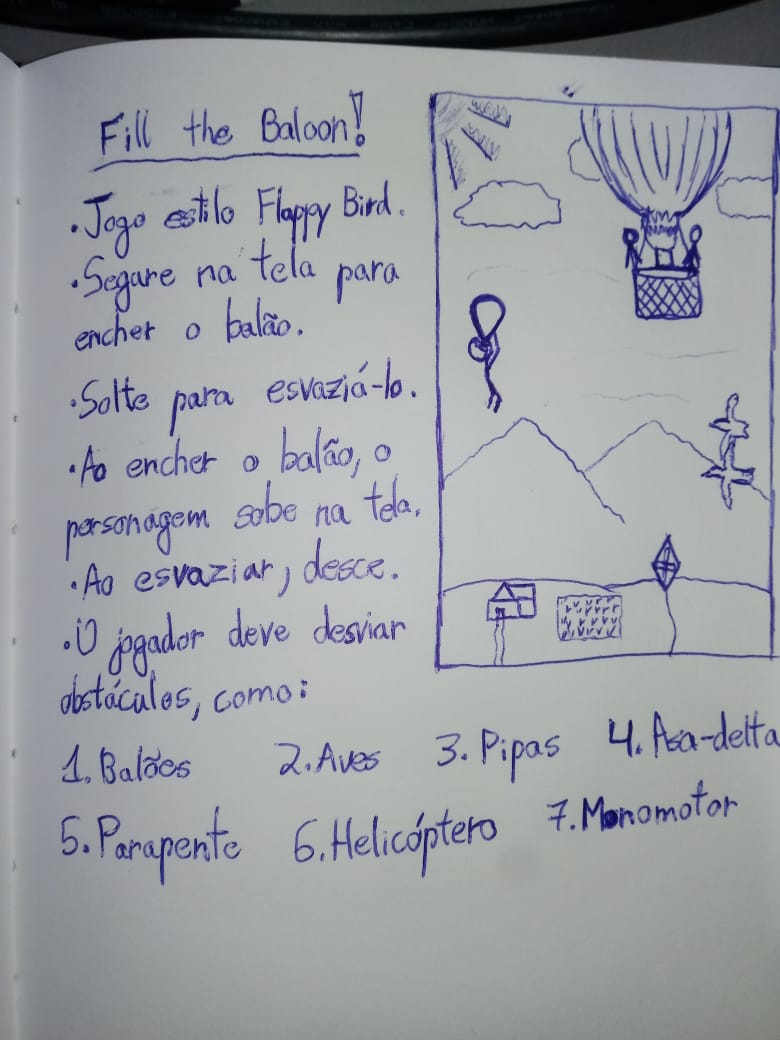 Fill the Baloon!
•Jogo estilo Flappy Bird.
•Segure na tela para
encher o balão.
•Solte para esvaziá-lo.
•Ao encher o balão, o
personagem sobe na tela.
•Ao esvaziar, desce.
•O jogador deve desviar
obstáculos, como:
1. Balões 2. Aves 3. Pipas 4. Asa-delta
5. Parapente 6. Helicóptero 7. Monomotor